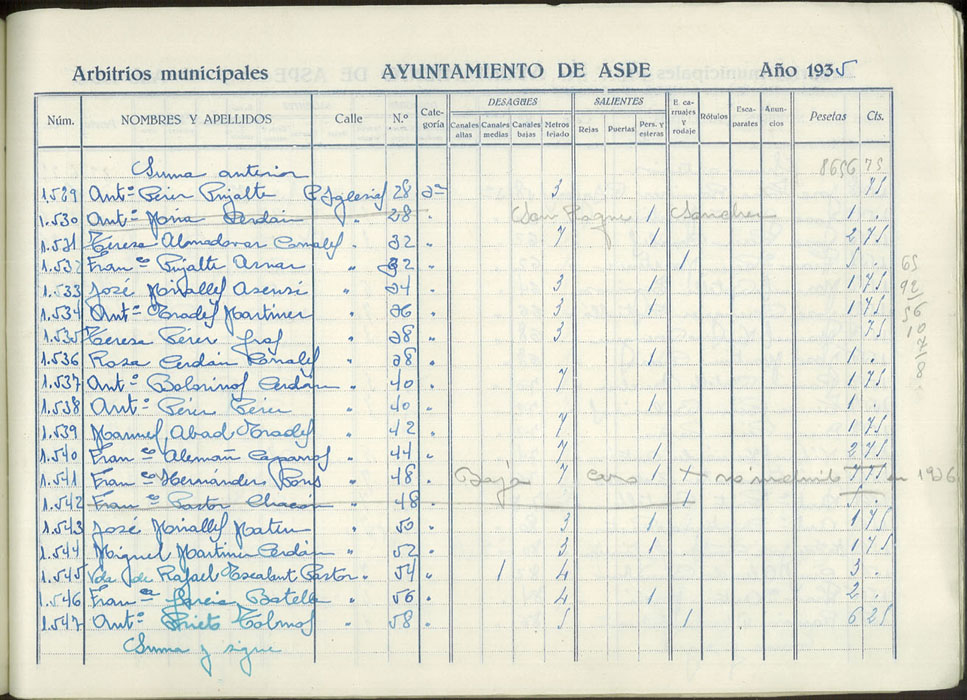 Arbitrios municipales AYUNTAMIENTO DE ASPE Año 1935
DESAGÜES SALIENTES
Núm. NOMBRES Y APELLIDOS Calle N.º Cate-goría Canales altas Canales medias Canales bajas Metros tejado Rejas Puertas Pers. y esteras E. ca-rruajes y rodaje Rótulos Esca-parates Anun-cios Pesetas Cts.
Suma anterior 8656 75
1.529 Antº Pérez Pujalte P. Iglesias 28 2ª 3 75
1.530 Antº Mira Cerdán " 28 " San Roque 1 Sanchez 1 .
1.531 Teresa Almodovar Canales " 32 " 7 1 2 75
1.532 Franco Pujalte Aznar " 32 " 1 5 .
1.533 José Miralles Asensi " 34 " 3 1 1 75
1.534 Antº Prades Martinez " 36 " 3 1 1 75
1.535 Teresa Pérez Gras " 38 " 3 75
1.536 Rosa Cerdán Canales " 38 " 1 1 .
1.537 Antº Botorinos Cerdán " 40 " 7 1 75
1.538 Antº Pérez Pérez " 40 " 1 1 .
1.539 Manuel Abad Prades " 42 " 7 1 75
1.540 Franco Alemañ Caparrós " 44 " 7 1 2 75
1.541 Franco Hernández Pons " 48 " Baja 7 1 + 7 75 en 1936
1.542 Franco Pastor Chacón " 48 " 1 5 .
1.543 José Miralles Mateu " 50 " 3 1 1 75
1.544 Miguel Martinez Cerdán " 52 " 3 1 1 75
1.545 Vda de Rafael Escalant Pastor " 54 " 1 4 3 .
1.546 Franca García Botella " 56 " 4 1 2 .
1.547 Antº Prieto Tolmos " 58 " 5 1 6 25
Suma y sigue